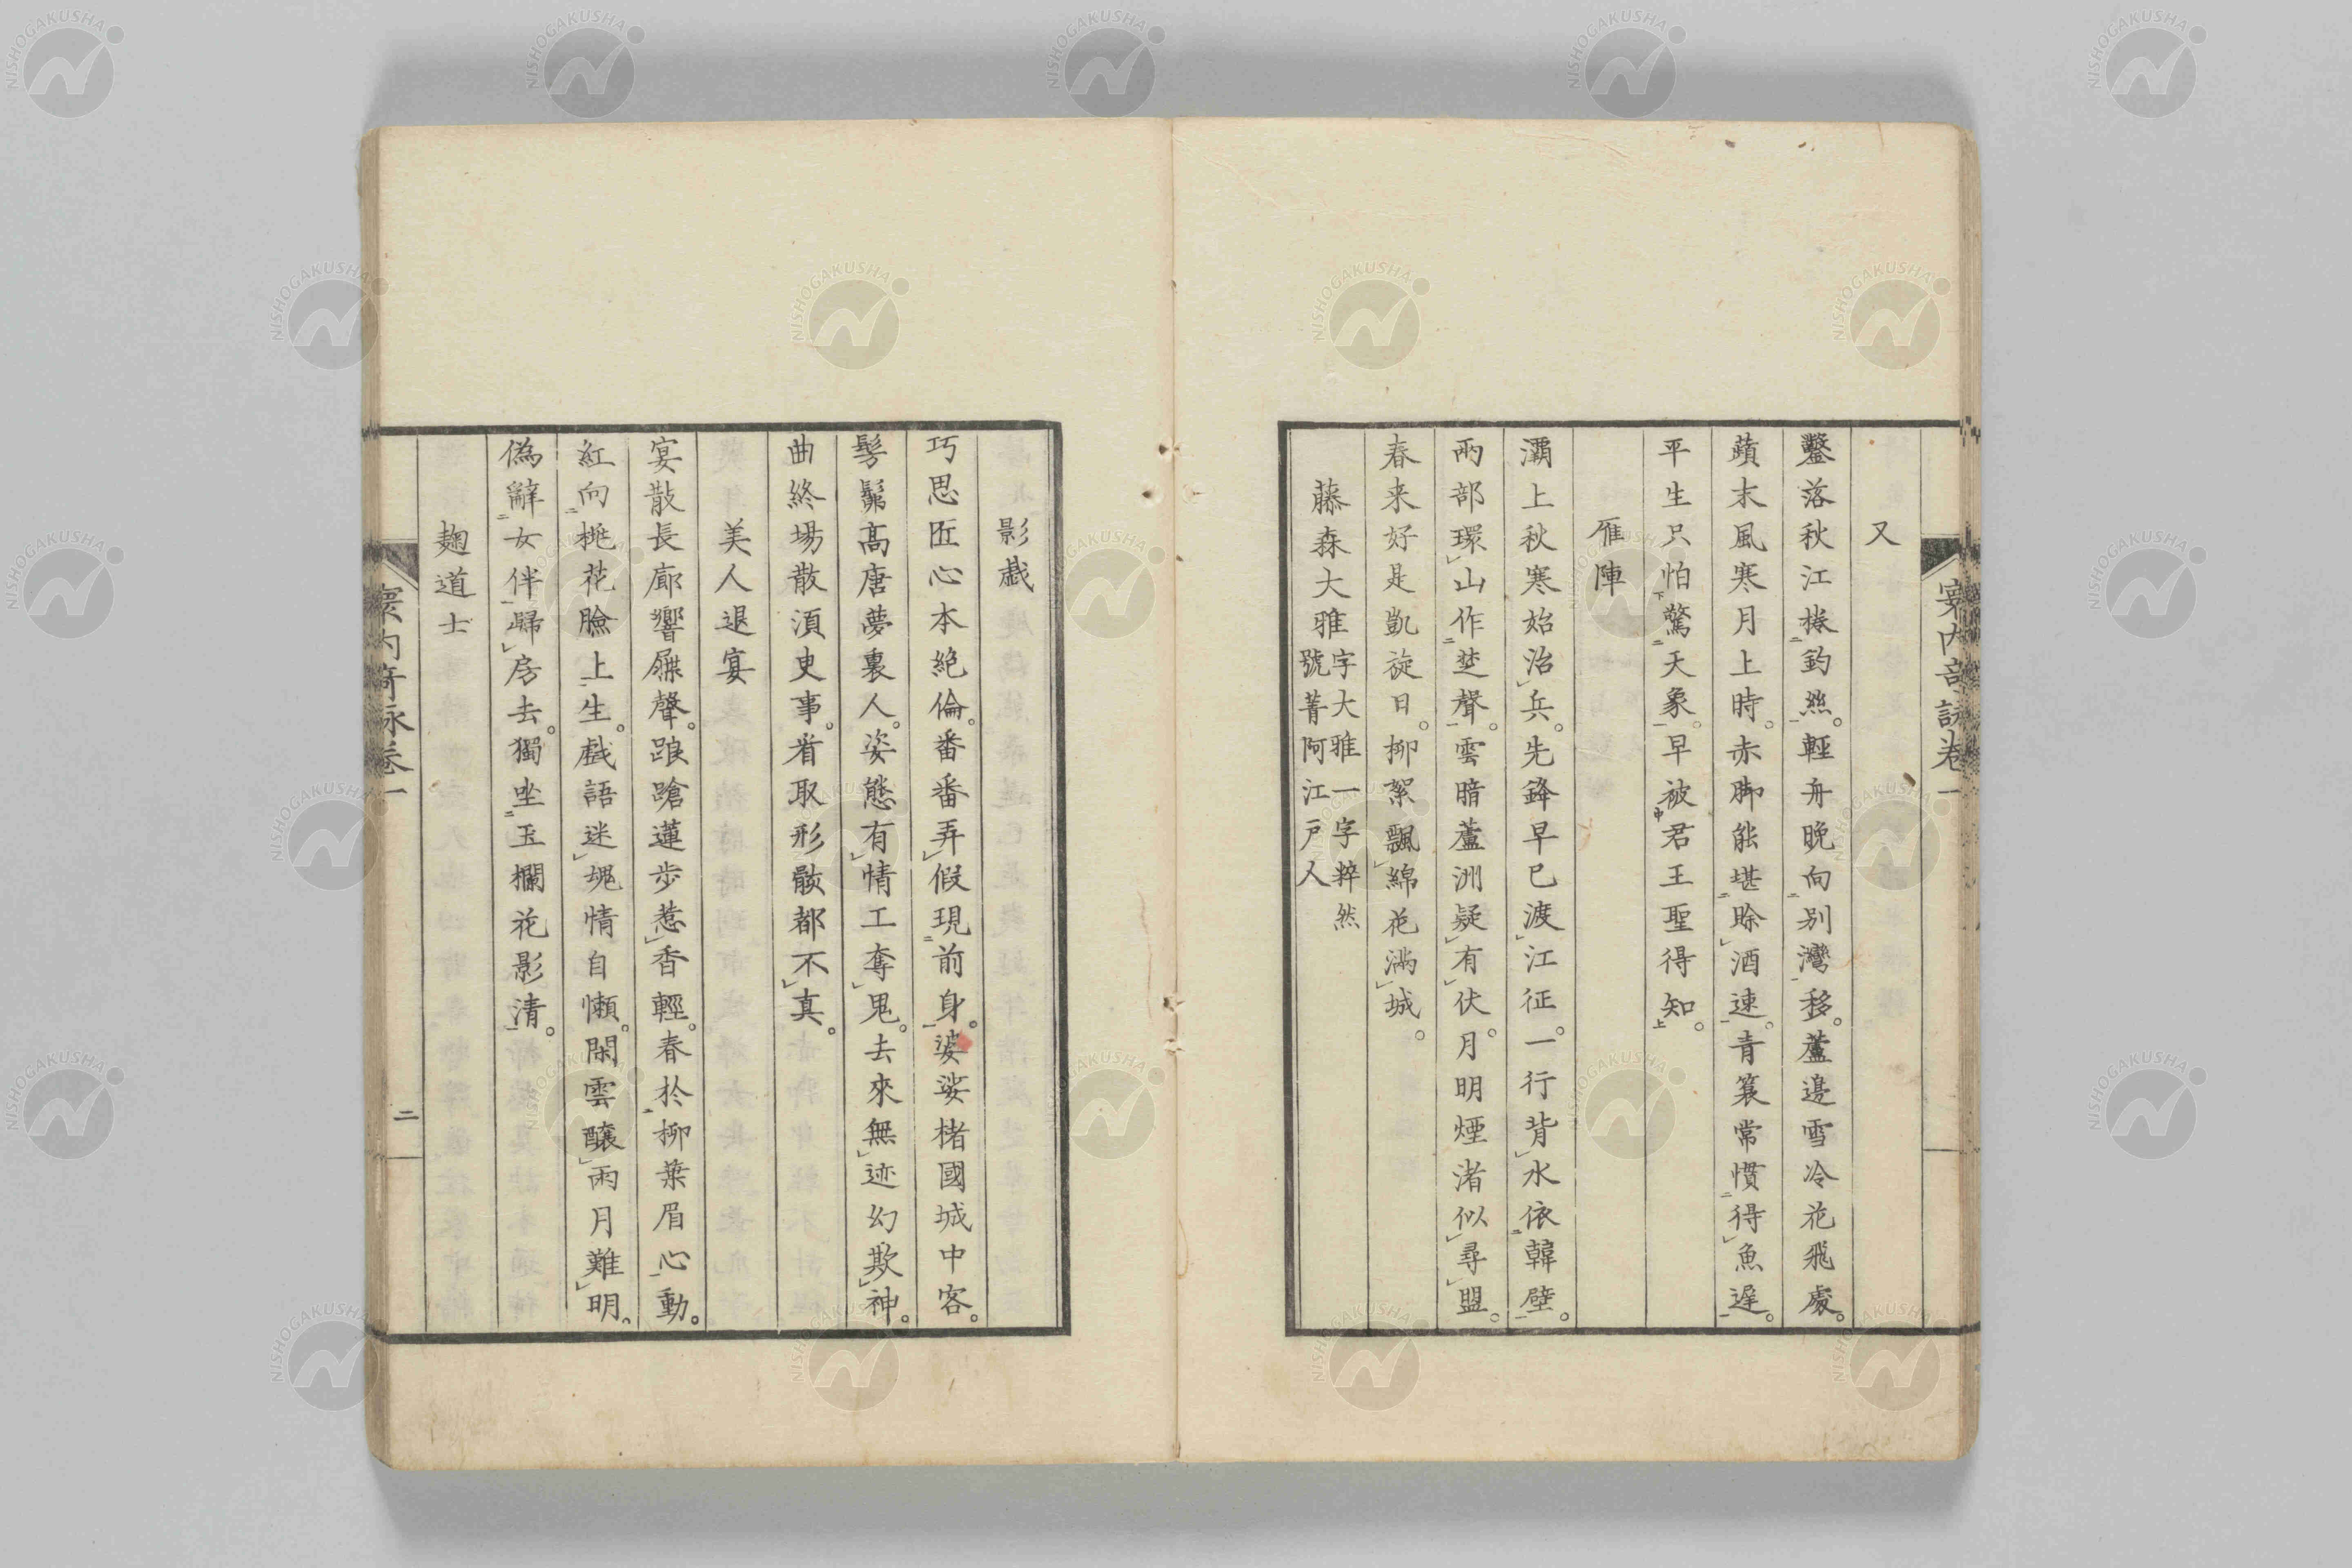 又
鑿落秋江捲釣絲。輕舟晚向別灣移。蘆邊雪冷花飛處。
蘋末風寒月上時。赤脚能堪賒酒速。青簑常慣得魚遅。
平生只怕驚天象。早被君王聖得知。
雁陣
灞上秋寒始治兵。先鋒早已渡江征。一行背水依韓壁。
兩部環山作楚聲。雲暗蘆洲疑有伏。月明煙渚似尋盟。
春来好是凱旋日。柳絮飄綿花滿城。
藤森大雅字大雅一字粹然
號菁阿江戸人
影戯
巧思匠心本絶倫。番番弄假現前身。婆娑楮國城中客。
髣髴高唐夢裏人。姿態有情工奪鬼。去來無迹幻欺神。
曲終場散湏史事。看取形骸都不真。
美人退宴
宴散長廊響屧聲。踉蹌蓮歩惹香輕。春於柳葉眉心動。
紅向桃花臉上生。戯語迷魂情自懶。閑雲釀雨月難明。
偽辭女伴歸房去。獨坐玉欄花影清。
麹道士
卷一
二